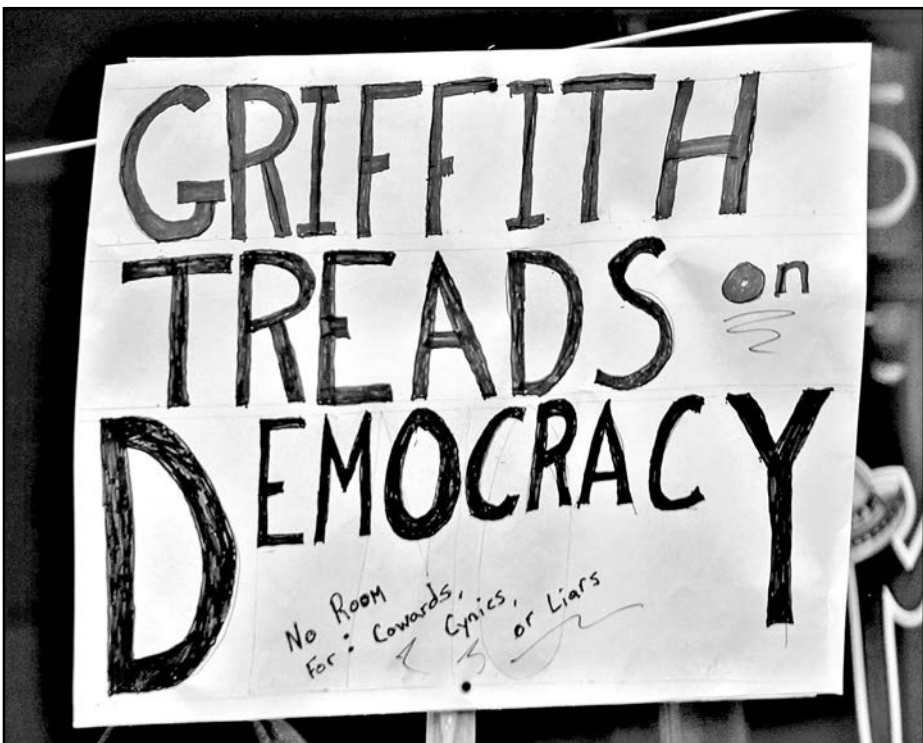 GRIFFITH
TREADS on
DEMOCRACY
No Room
For: Cowards,
Cynics,
or Liars